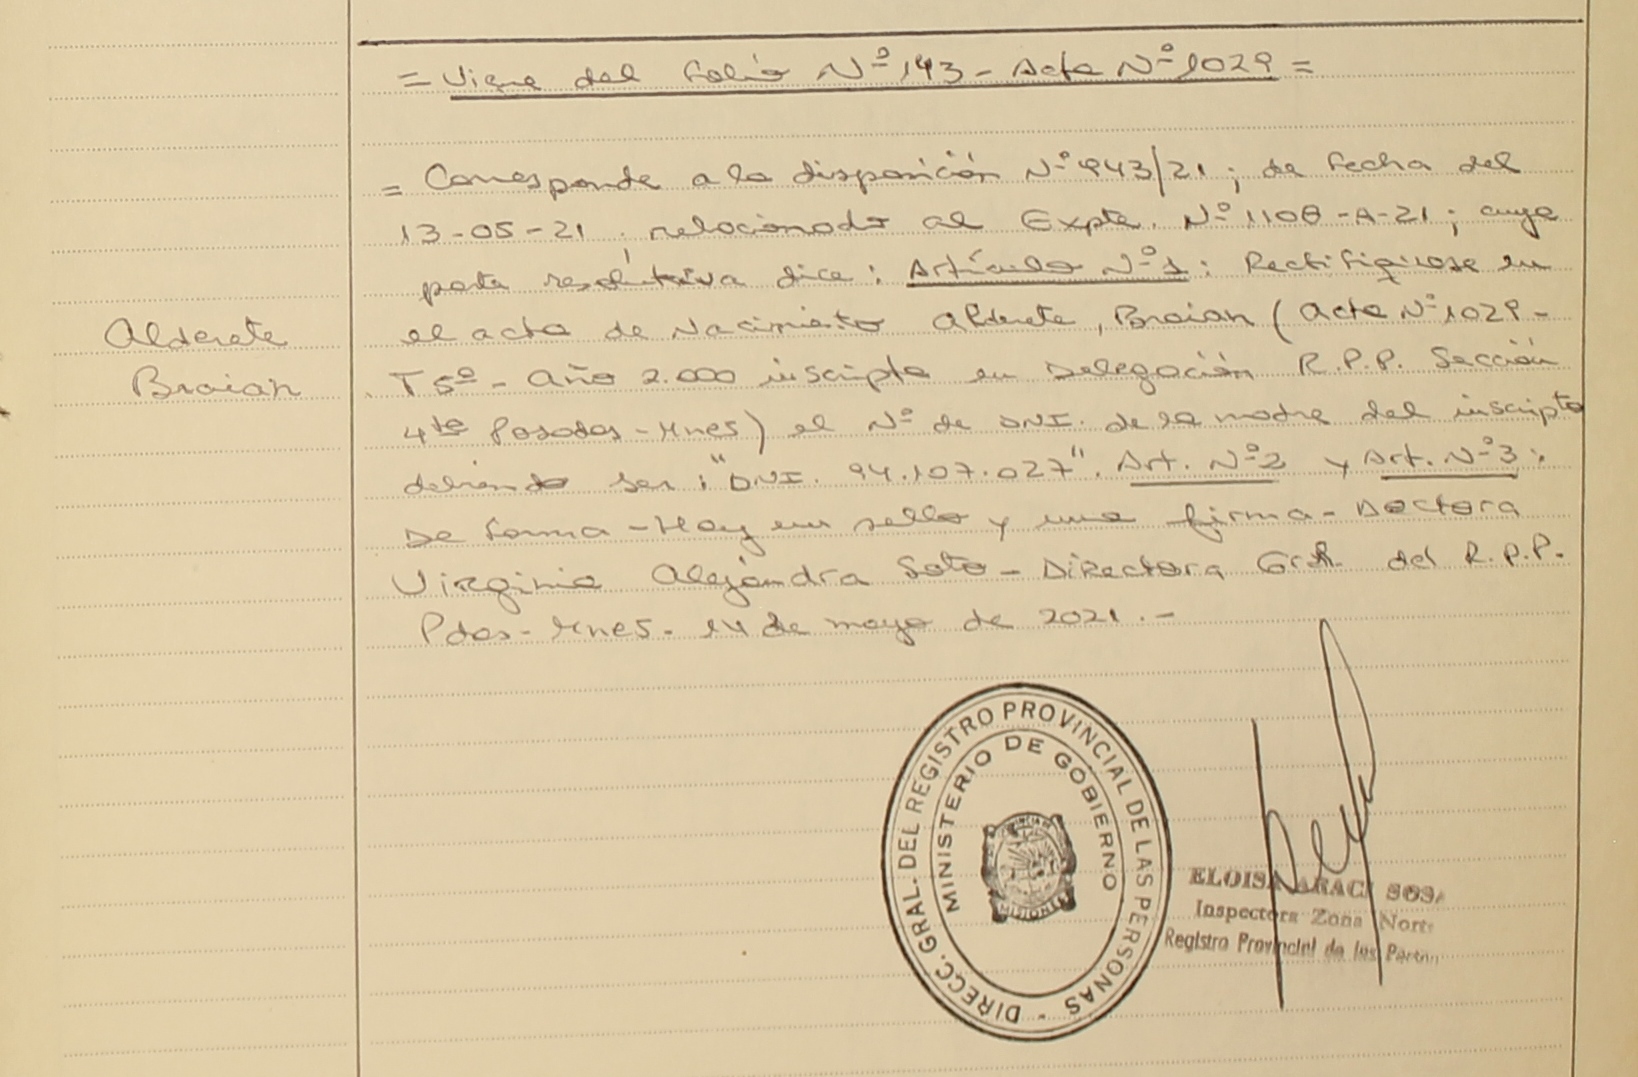 = Viene del Folio Nº 143 - Acta Nº 1029 =
= Corresponde a la disposición Nº 943/21; de fecha del
13-05-21; relacionado al Expte. Nº 1108-A-21; cuya
parte resolutiva dice: Artículo Nº 1: Rectifíquese en
el acta de Nacimiento Alderete, Braian (Acta Nº 1029 -
T 5º - Año 2.000 inscripta en Delegación R.P.P. Sección
4ta Posadas - Mnes) el Nº de DNI. de la madre del inscripto
debiendo ser: "DNI. 94.107.027". Art. Nº 2 y Art. Nº 3:
De forma - Hay un sello y una firma - Doctora
Virginia Alejandra Soto - Directora Gral. del R.P.P.
Pdas - Mnes - 14 de mayo de 2021.-
Alderete
Braian
DIRECC. GRAL. DEL REGISTRO PROVINCIAL DE LAS PERSONAS -
MINISTERIO DE GOBIERNO
MISIONES
ELOISA ARACI SOSA
Inspectora Zona Norte
Registro Provincial de las Person